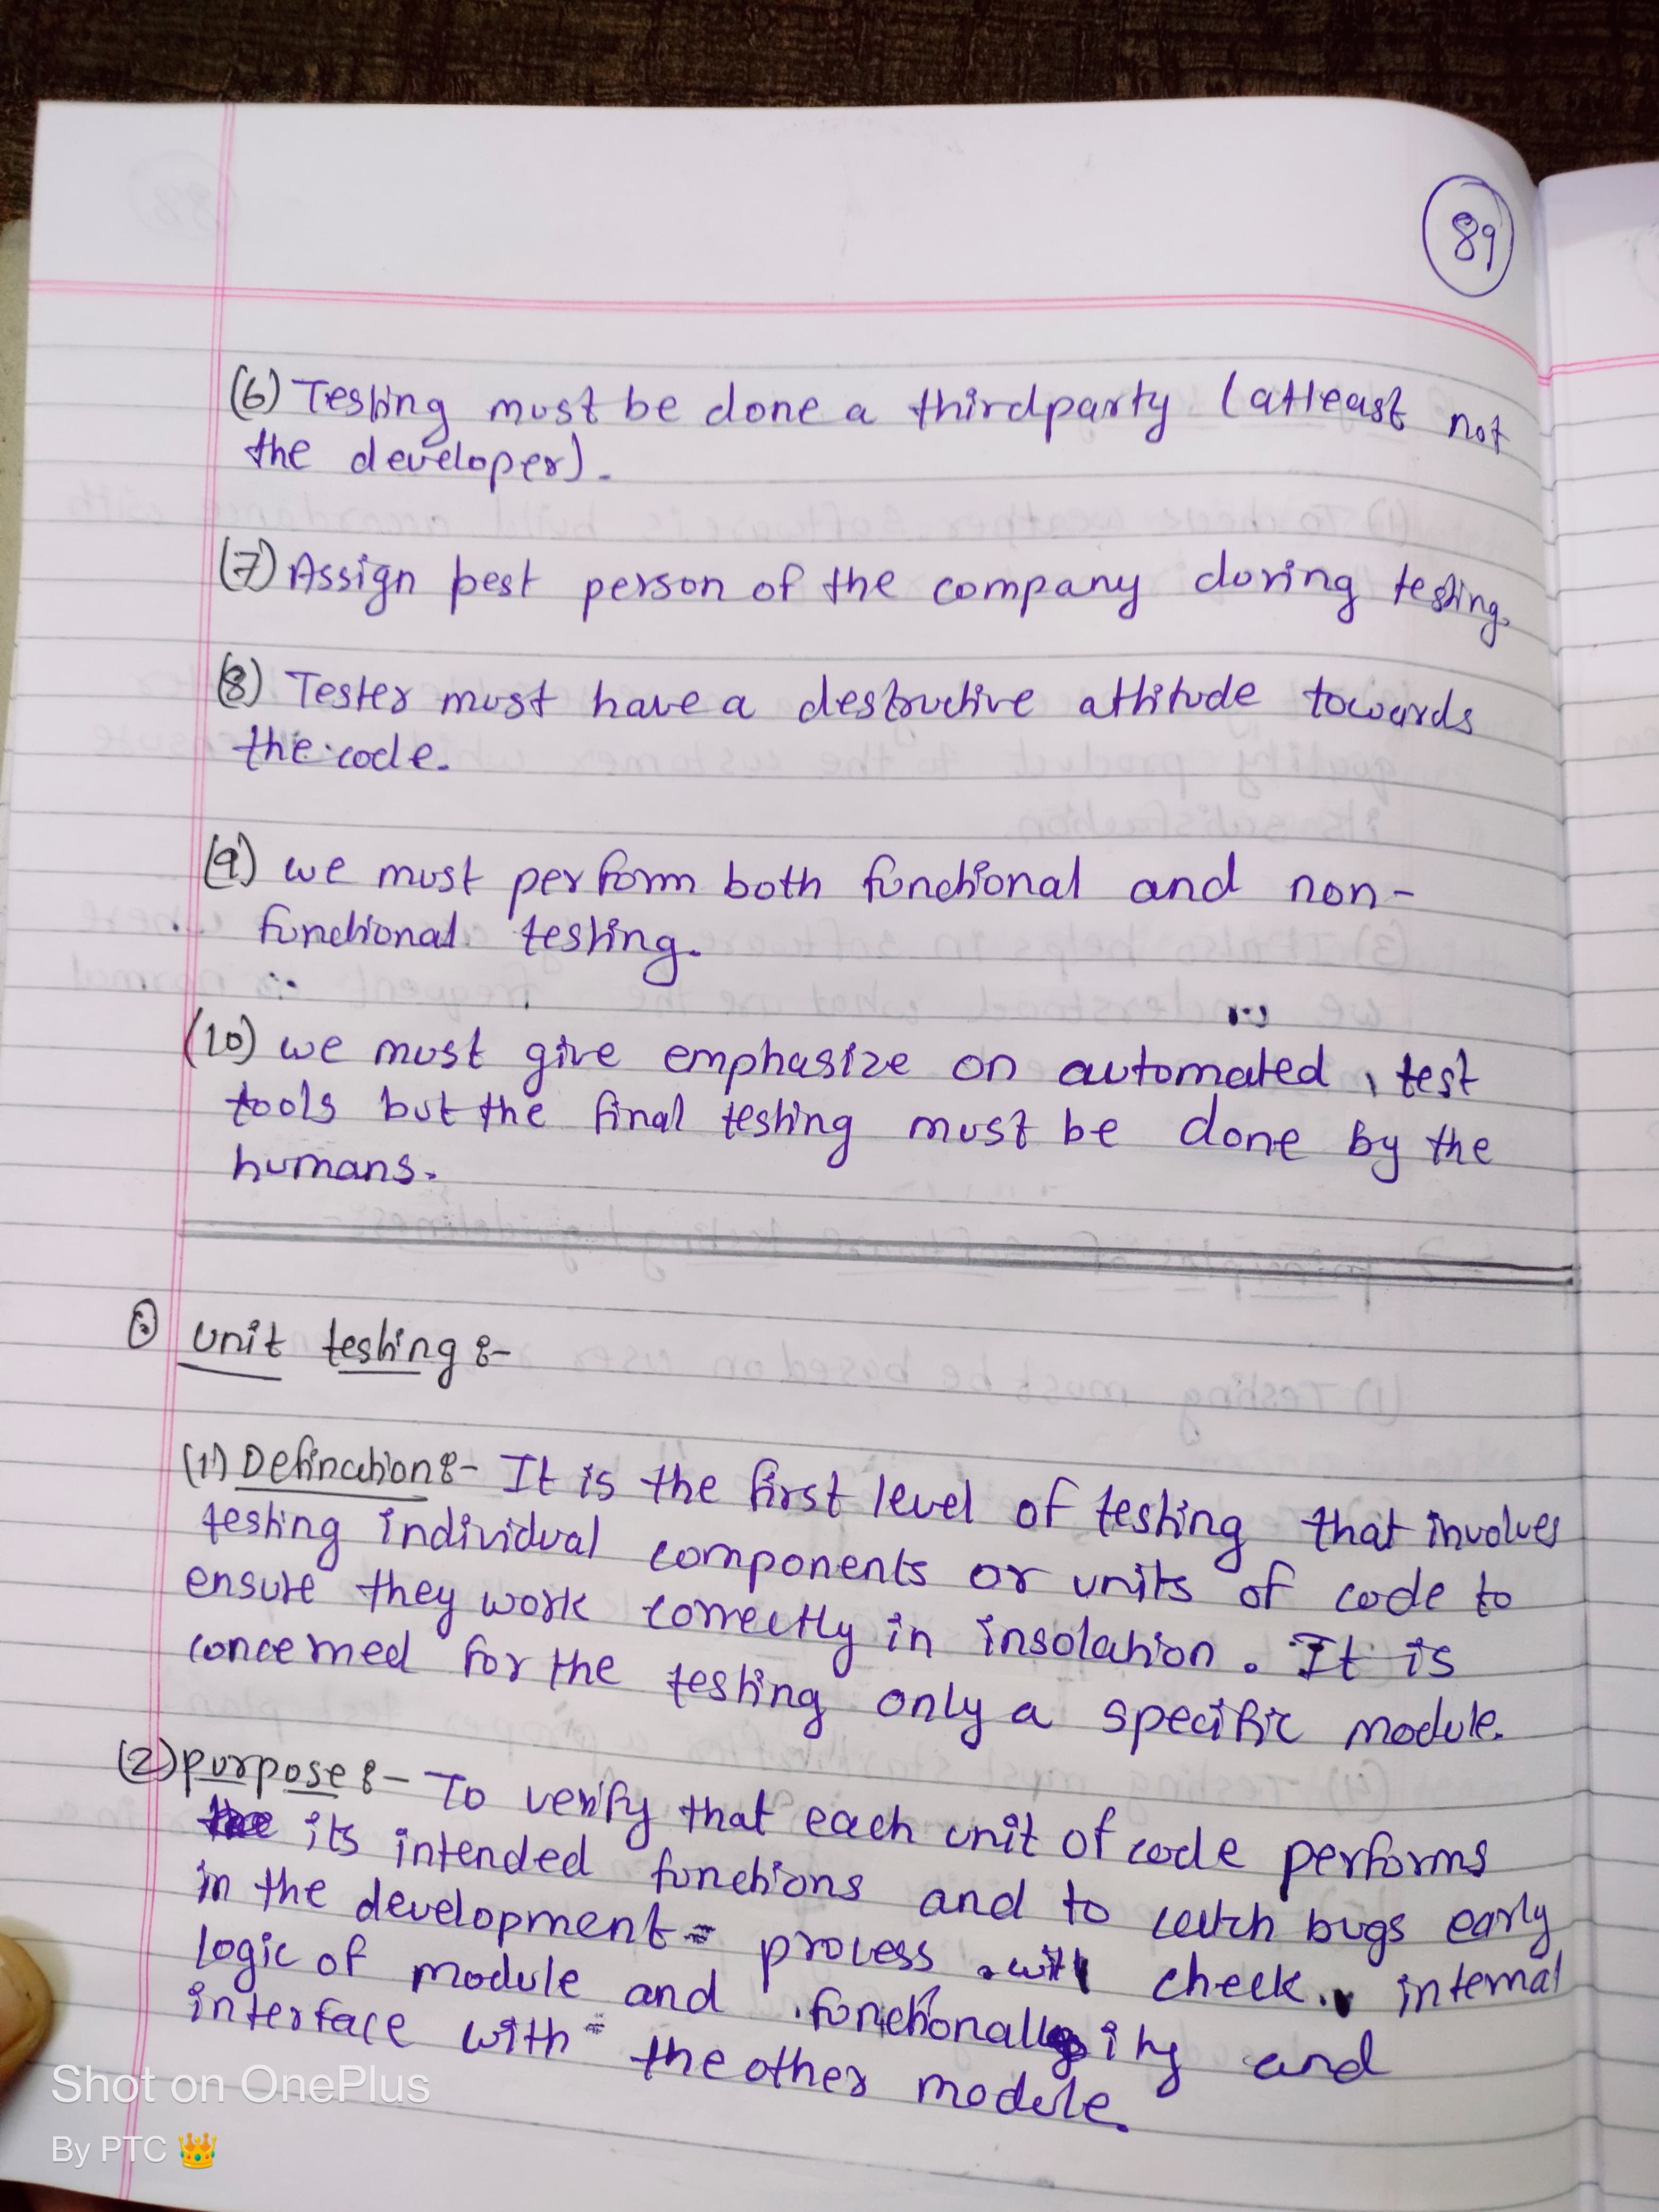 89
(6) Testing must be done a thirdparty (atleast not
the developer).
(7) Assign best person of the company during testing.
(8) Tester must have a destructive attitude towards
the code.
(9) we must perform both functional and non-
functional testing.
(10) we must give emphasize on automated test
tools but the final testing must be done by the
humans.
unit testing :-
(1) Defination :- It is the first level of testing that involves
testing individual components or units of code to
ensure they work correctly in insolation. It is
concerned for the testing only a specific module.
(2) purpose :- To verify that each unit of code performs
its intended functions and to catch bugs early
in the development process. will check internal
logic of module and functionality and
interface with the other module.
Shot on OnePlus
By PTC 👑